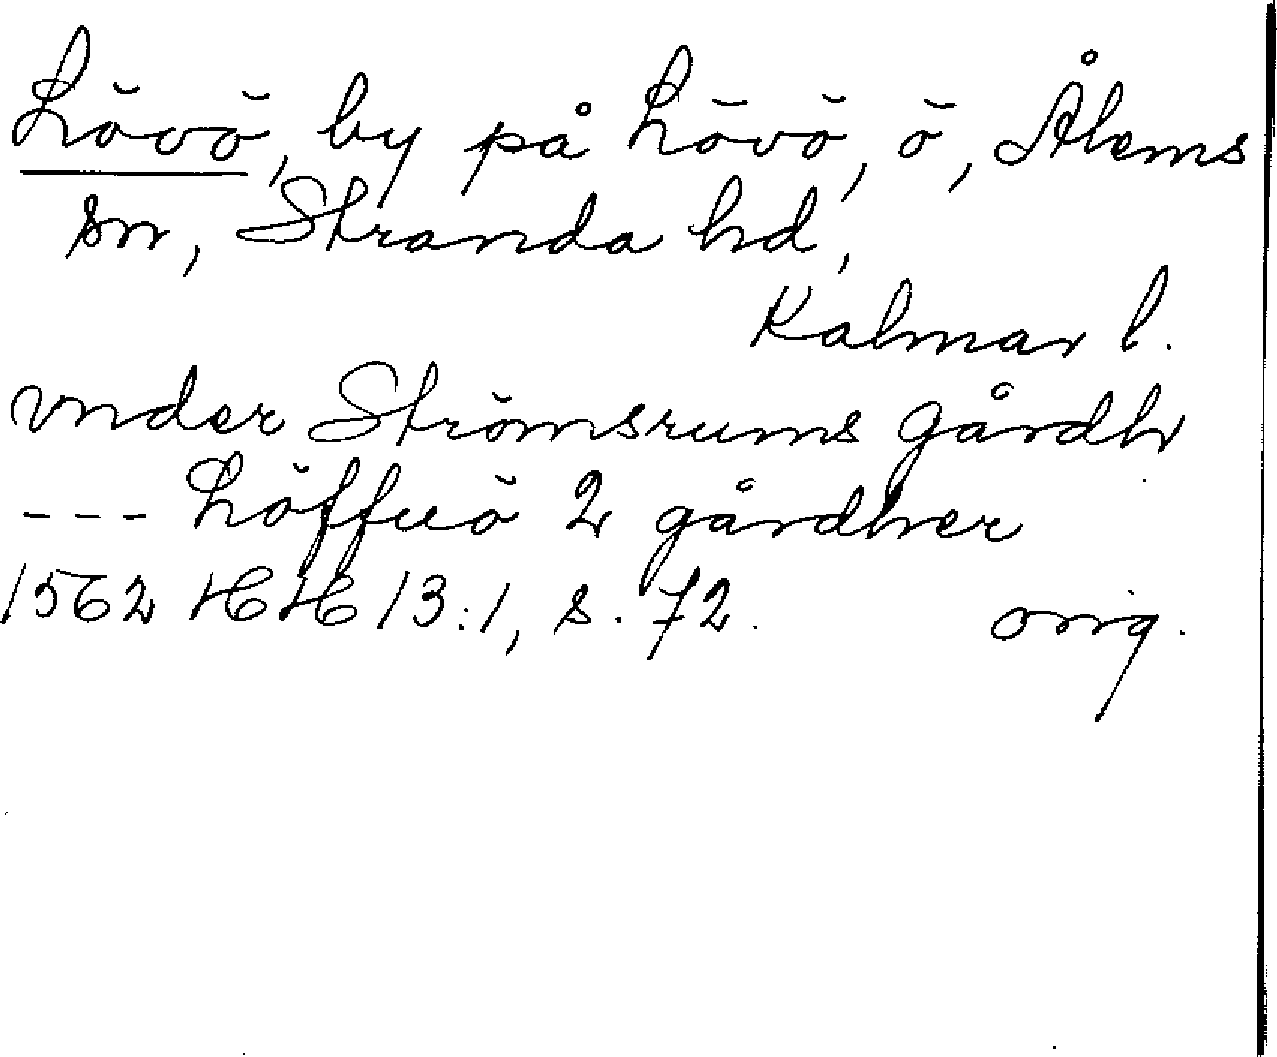 Lövö, by på Lövö, ö, Ålems
sn, Stranda hd,
Kalmar l.
vnder Strömsrums gårdh
--- Löffuö 2 gårdher
1562 HH 13:1, s. 72. orig.